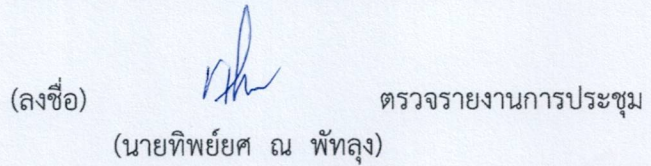 (ลงชื่อ) ตรวจรายงานการประชุม
(นายทิพย์ยศ ณ พัทลุง)